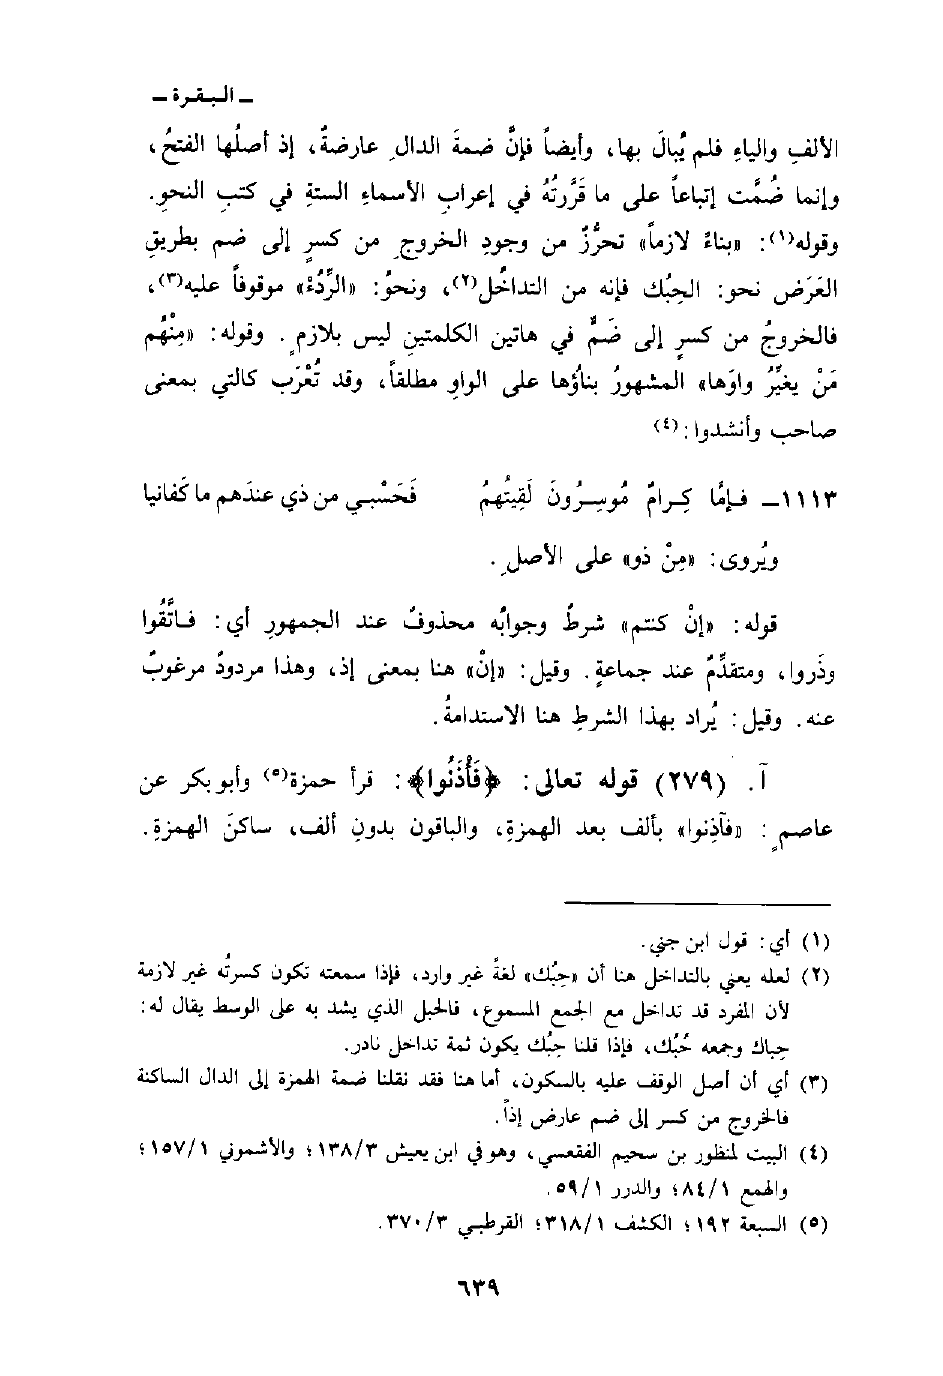 ـ البقرة ـ
الألفِ والياءِ فلم يُبالَ بها، وأيضاً فإنَّ ضمةَ الدالِ عارضةٌ، إذ أصلُها الفتحُ،
وإنما ضُمَّت إتباعاً على ما قَرَّرتُهُ في إعرابِ الأسماءِ الستةِ في كتبِ النحوِ.
وقوله(١): «بناءً لازماً» تحرُّزٌ من وجودِ الخروجِ من كسرٍ إلى ضم بطريقِ
العَرَض نحو: الحِبُك فإنه من التداخُل(٢)، ونحوُ: «الرِّدُءْ» موقوفاً عليه(٣)،
فالخروجُ من كسرٍ إلى ضَمٍّ في هاتين الكلمتينِ ليس بلازمٍ. وقوله: «مِنْهُم
مَنْ يغيِّرُ واوَها» المشهورُ بناؤها على الواوِ مطلقاً، وقد تُعْرَب كالتي بمعنى
صاحب وأنشدوا:(٤)
١١١٣ـ فإمَّا كِرامٌ مُوسِرُونَ لَقِيتُهمُ فَحَسْبي من ذي عندَهم ما كَفانيا
ويُروى: «مِنْ ذو» على الأصلِ.
قوله: «إنْ كنتم» شرطٌ وجوابُه محذوفٌ عند الجمهورِ أي: فاتَّقُوا
وذَروا، ومتقدِّمٌ عند جماعةٍ. وقيل: «إنْ» هنا بمعنى إذ، وهذا مردودٌ مرغوبٌ
عنه. وقيل: يُراد بهذا الشرطِ هنا الاستدامةُ.
آ. (٢٧٩) قوله تعالى: ﴿فَأْذَنُوا﴾: قرأ حمزة(٥) وأبو بكر عن
عاصمٍ: «فآذِنوا» بألف بعد الهمزةِ، والباقون بدونِ ألف، ساكنَ الهمزةِ.
(١) أي: قول ابن جني.
(٢) لعله يعني بالتداخل هنا أن «حِبُك» لغةً غير وارد، فإذا سمعته تكون كسرتُه غير لازمة
لأن المفرد قد تداخل مع الجمع المسموع، فالحبل الذي يشد به على الوسط يقال له:
حِباك وجمعه حُبُك، فإذا قلنا حِبُك يكون ثمة تداخل نادر.
(٣) أي أن أصل الوقف عليه بالسكون، أما هنا فقد نقلنا ضمة الهمزة إلى الدال الساكنة
فالخروج من كسر إلى ضم عارض إذاً.
(٤) البيت لمنظور بن سحيم الفقعسي، وهو في ابن يعيش ١٣٨/٣؛ والأشموني ١٥٧/١؛
والهمع ٨٤/١؛ والدرر ٥٩/١.
(٥) السبعة ١٩٢؛ الكشف ٣١٨/١؛ القرطبي ٣٧٠/٣.
٦٣٩